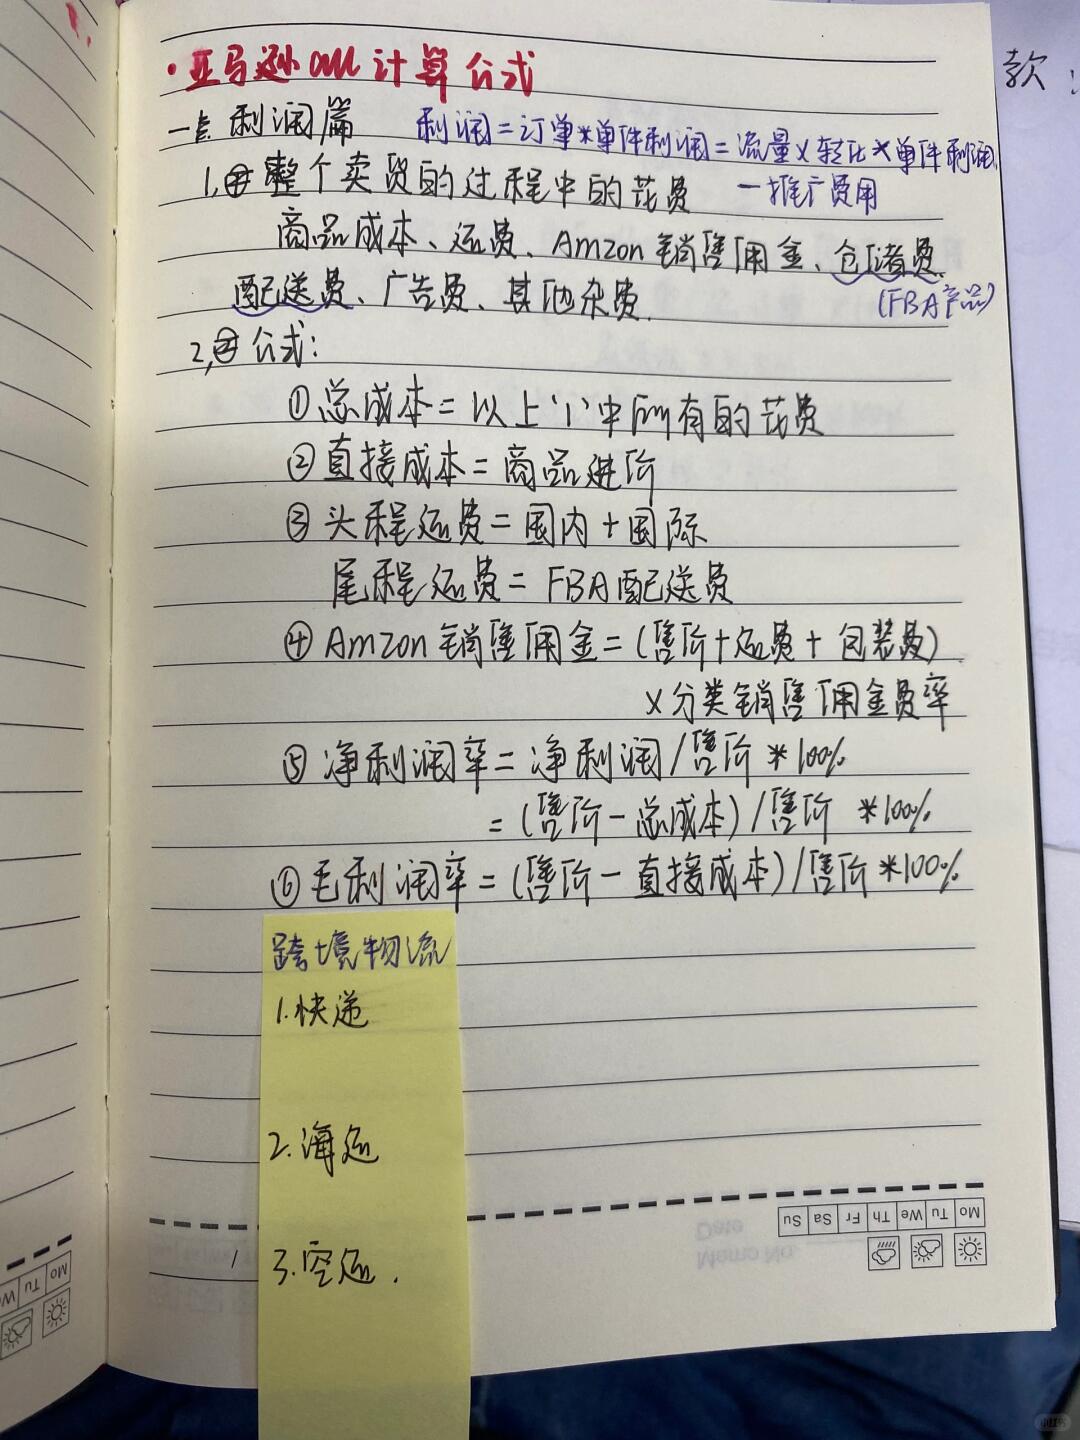 款
·亚马逊all计算公式
一、利润篇 利润=订单*单件利润=流量×转化×单件利润
一推广费用
1, 整个卖货的过程中的花费
商品成本、运费、Amzon销售佣金、仓储费
配送费、广告费、其他杂费.
(FBA产品)
2, 公式:
①总成本=以上'1'中所有的花费
②直接成本=商品进价
③头程运费=国内+国际
尾程运费=FBA配送费
④Amzon销售佣金=(售价+运费+包装费)
×分类销售佣金费率
⑤净利润率=净利润/售价*100%
=(售价-总成本)/售价*100%
⑥毛利润率=(售价-直接成本)/售价*100%
跨境物流
1.快递
2.海运
3.空运.
Mo Tu We Th Fr Sa Su
Date
Memo No.
Mo Tu We
小红书